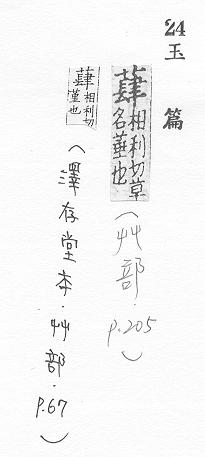 24 玉篇
蕼相利切草
名也
(艸部.p.205)
蕼相利切
也
(澤存堂本.艸部.p.67)